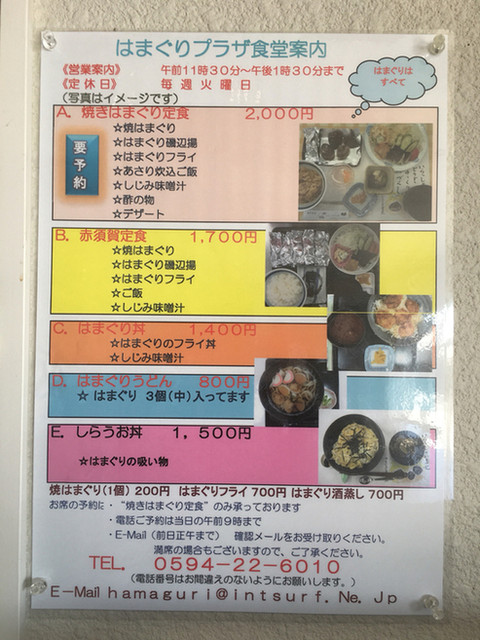 はまぐりプラザ食堂案内
《営業案内》 午前11時30分～午後1時30分まで
《定休日》 毎週火曜日
(写真はイメージです)
はまぐりは
すべて
A. 焼きはまぐり定食 2,000円
要予約
☆焼はまぐり
☆はまぐり磯辺揚
☆はまぐりフライ
☆あさり炊込ご飯
☆しじみ味噌汁
☆酢の物
☆デザート
B. 赤須賀定食 1,700円
☆焼はまぐり
☆はまぐり磯辺揚
☆はまぐりフライ
☆ご飯
☆しじみ味噌汁
C. はまぐり丼 1,400円
☆はまぐりのフライ丼
☆しじみ味噌汁
D. はまぐりうどん 800円
☆ はまぐり 3個(中)入ってます
E. しらうお丼 1,500円
☆はまぐりの吸い物
焼はまぐり(1個) 200円 はまぐりフライ 700円 はまぐり酒蒸し 700円
お席の予約は・“焼きはまぐり定食”のみ承っております
・電話ご予約は当日の午前9時まで
・E-Mail(前日正午まで) 確認メールをお受け取りください。
満席の場合もございますので、ご了承ください。
TEL. 0594-22-6010
(電話番号はお間違えのないようにお願いします。)
E-Mail hamaguri@intsurf.Ne.Jp